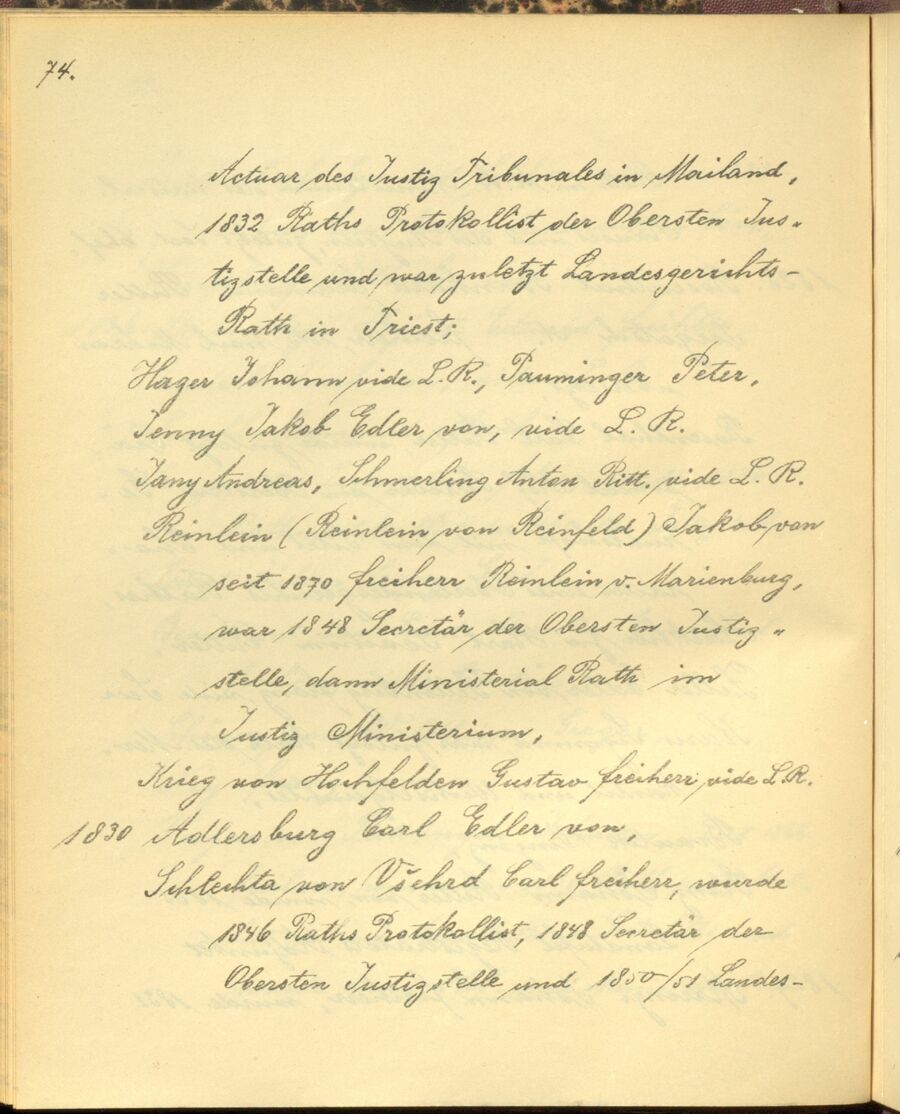 74.
Actuar des Justiz Tribunales in Mailand,
1832 Raths Protokollist der Obersten Jus„
tizstelle und war zuletzt Landesgerichts-
Rath in Triest;
Hager Johann vide L. R., Pauminger Peter,
Jenny Jakob Edler von, vide L. R.
Jany Andreas, Schmerling Anton Ritt. vide L. R.
Reinlein (Reinlein von Reinfeld) Jakob von
seit 1870 freiherr Reinlein v. Marienburg,
war 1848 Secretär der Obersten Justiz„
stelle, dann Ministerial Rath im
Justiz Ministerium,
Krieg von Hochfelden Gustav freiherr vide L. R.
1830 Adlersburg Carl Edler von,
Schlechta von Všehrd Carl freiherr, wurde
1846 Raths Protokollist, 1848 Secretär der
Obersten Justizstelle und 1850/51 Landes-